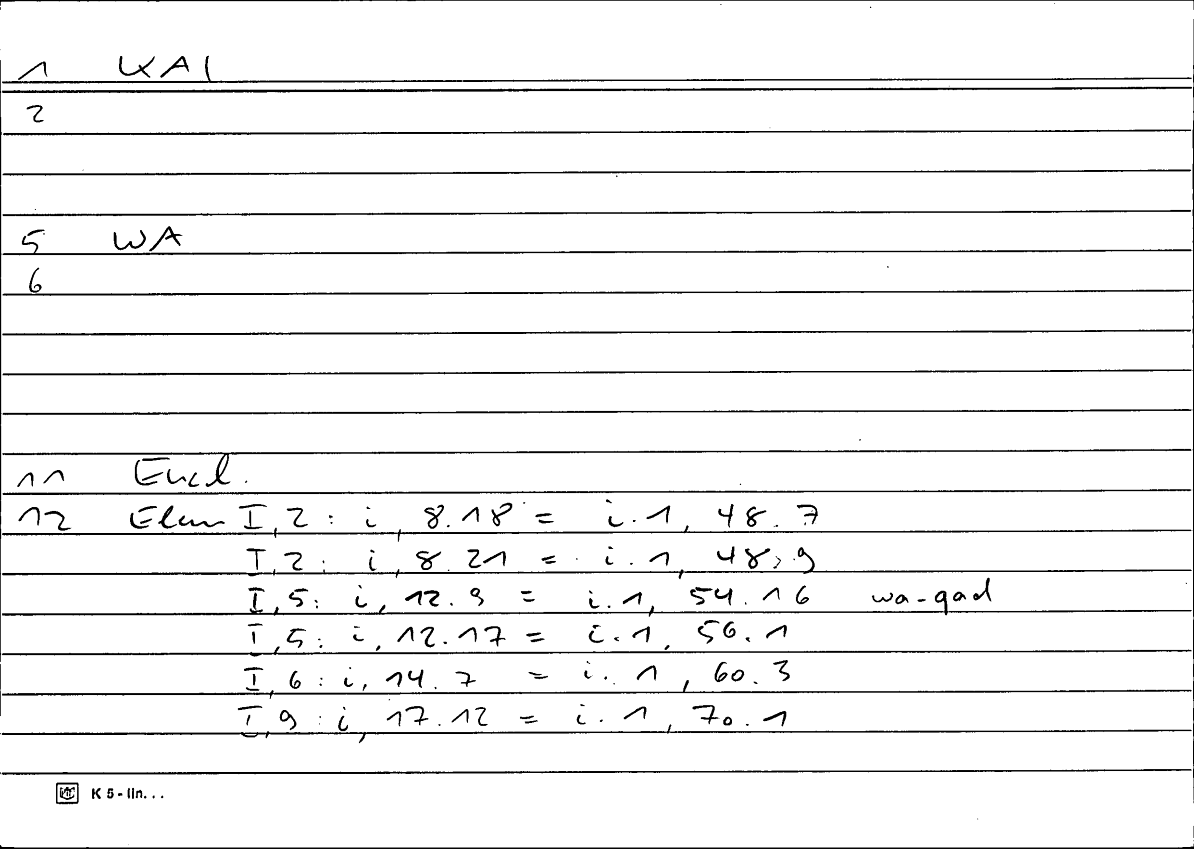 1 KAI
2
5 WA
6
11 Eucl.
12 Elem I,2 : i, 8.18 = i.1, 48.7
I,2 : i, 8.21 = i.1, 48,9
I,5 : i, 12.9 = i.1, 54.16 wa-qad
I,5 : i, 12.17 = i.1, 56.1
I,6 : i, 14.7 = i.1, 60.3
I,9 : i, 17.12 = i.1, 70.1
K 5 - lin. . .